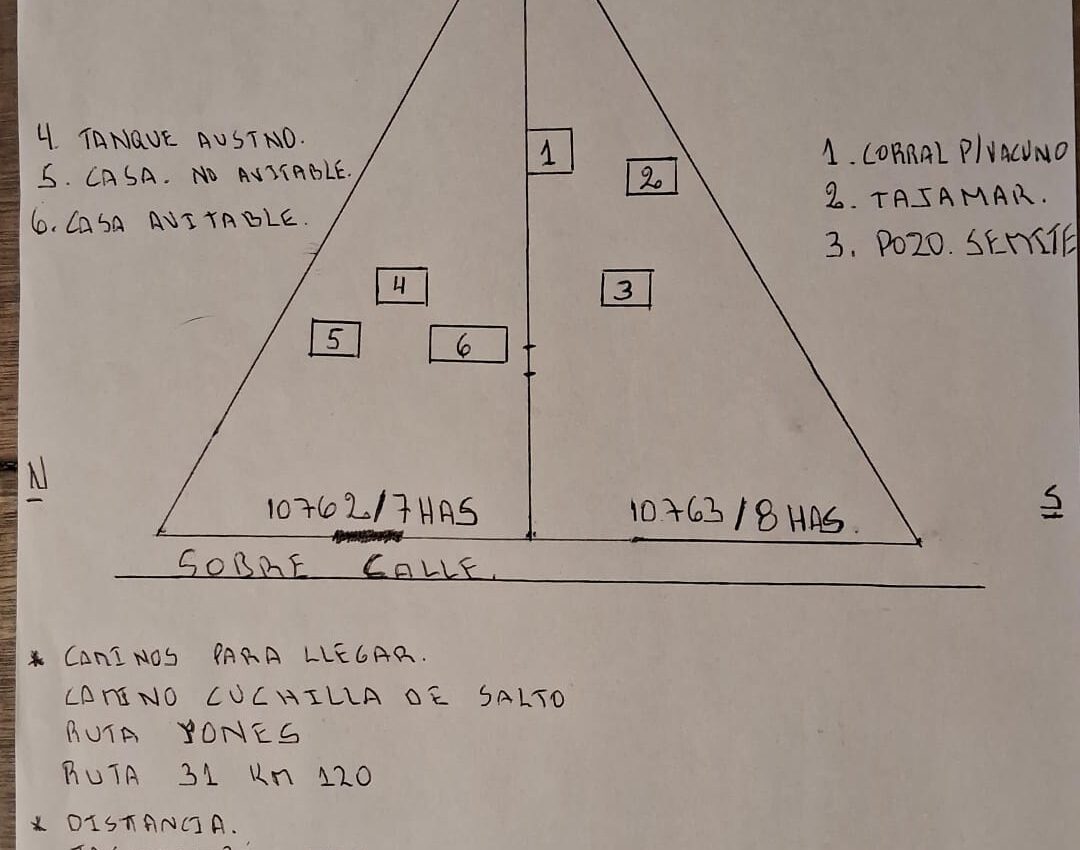 4 TANQUE AUSTNO.
5. CASA. NO AVITABLE.
6. CASA AVITABLE.
1. CORRAL P/VACUNO
2. TAJAMAR.
3. POZO. SEMIE
1
2
4
3
5
6
N
S
10762/7 HAS
10.763/8 HAS.
SOBRE CALLE.
* CAMINOS PARA LLEGAR.
CAMINO CUCHILLA DE SALTO
RUTA YONES
RUTA 31 KM 120
* DISTANCIA.